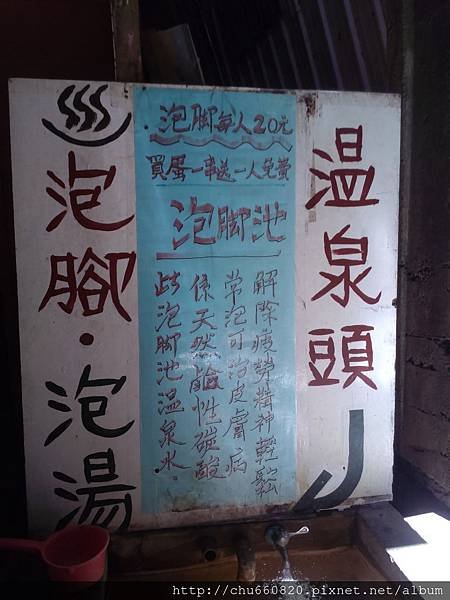 溫泉頭
泡脚每人20元
買蛋一串送一人免費
泡脚池
此泡脚池溫泉水.
係天然鹼性碳酸
常泡可治皮膚病
解除疲勞精神輕鬆
泡腳·泡湯
http://chu660820.pixnet.net/album